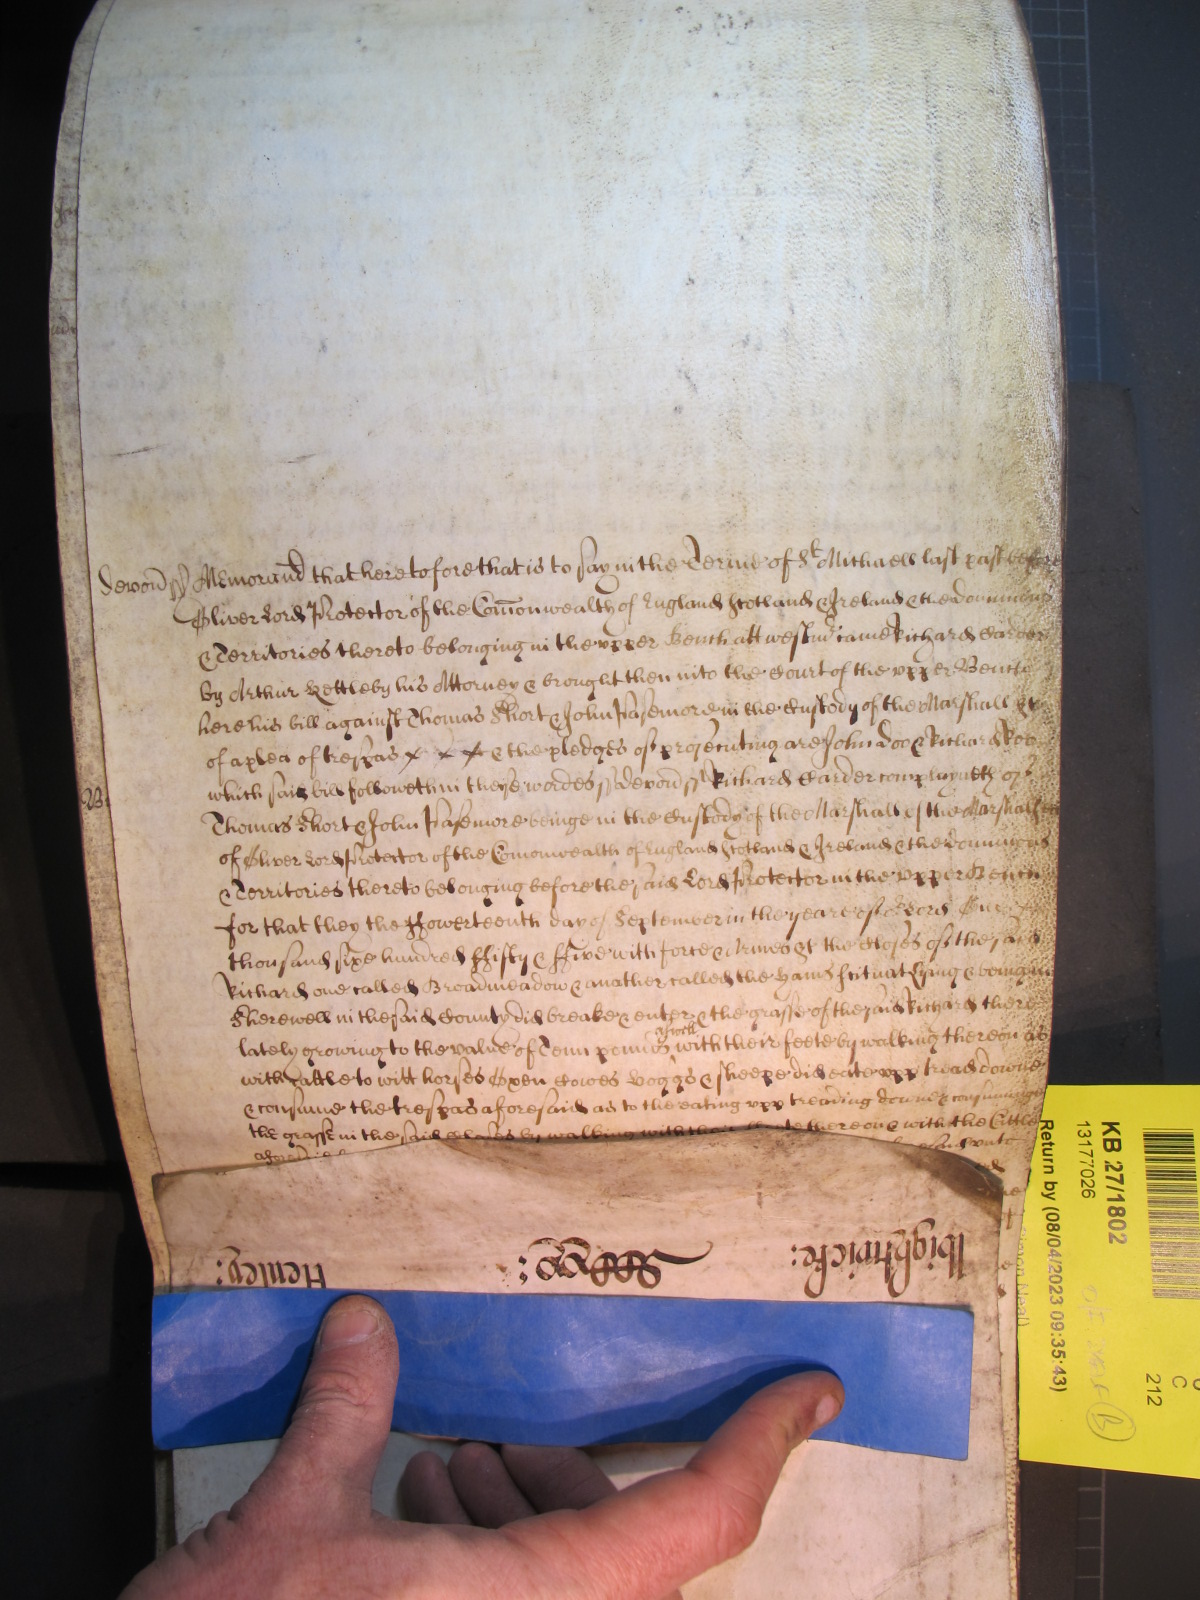 Devon ss Memorand that heretofore that is to say in the Terme of St Michaell last past before
Oliver Lord Protector of the Comonwealth of England Scotland & Ireland & the dominions
& Territories thereto belonging in the upper Bench att westmr came Richard Carder
by Arthur Kettleby his Attorney & brought then into the Court of the upper Bench
here his bill against Thomas Short & John Passmore in the Custody of the Marshall &c
of a plea of trespas x x x & the pledges of prosecuting are John Doo & Richard Roo
which said bill followeth in theise wordes ss Devon ss Richard Carder complayneth of
Thomas Short & John Passemore beinge in the Custody of the Marshall of the Marshalsea
of Oliver Lord Protector of the Comonwealth of England Scotland & Ireland & the dominions
& Territories thereto belonging before the said Lord Protector in the upper Bench
for that they the ffowerteenth day of September in the yeare of or Lord One
thousand sixe hundred ffifty & ffive with force & Armes &c the Closes of the said
Richard one called Broadmeadow & another called the Hams scituat lying & being in
Sherewell in the said County did breake & enter & the grasse of the said Richard there
lately growing to the value of Tenn pounds aswell with their feete by walking thereon as
with Cattle to witt horses Oxen Cowes hoggs & sheepe did eate upp tread downe
& consume the trespas aforesaid as to the eating upp treading downe & consuming of
the grasse in the said closes by walking with their feete thereon & with the Cattle
aforesaid
Wightwicke:
Henley:
KB 27/1802
13177026
Return by (08/04/2023 09:35:43)
C
212